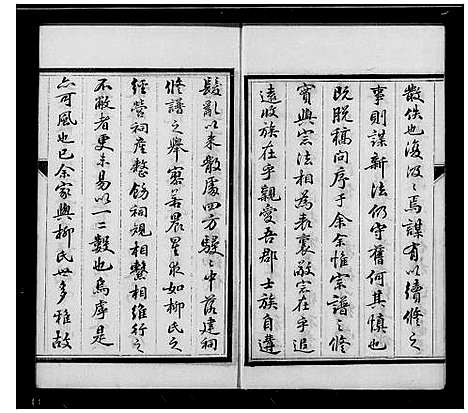 散佚也復汲汲焉謀有以續修之
事則謀新法仍守舊何其慎也
既脫稿向序于余余惟宗譜之修
實與宗法相為表裏敬宗在乎追
遠收族在乎親愛吾郡士族自遘
髮亂以來散處四方駸駸中落建祠
修譜之舉寥若晨星求如柳氏之
經營祠產整飭祠規相繫相維行之
不敝者更未易以一二數也烏虖是
亦可風也已余家與柳氏世多雅故